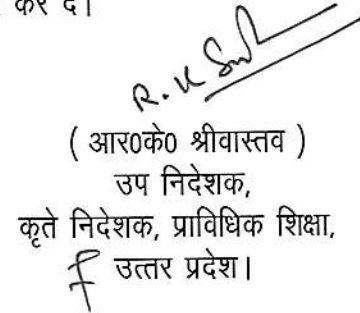 कर दें।
R. K Sr
( आर0के0 श्रीवास्तव )
उप निदेशक,
कृते निदेशक, प्राविधिक शिक्षा,
उत्तर प्रदेश।